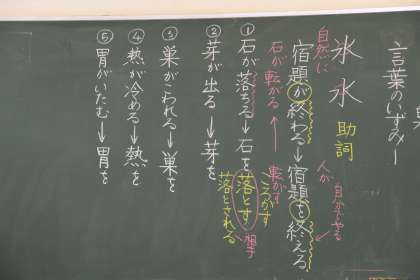 言葉のいずみー
氷 水 助詞
自然に 人が 自分でやる
宿題が終わる→宿題を終える
石が転がる← 転がす
①石が落ちる→石を落とす 相手
ころがす
落とされる
②芽が出る→芽を
③巣がこわれる→巣を
④熱が冷める→熱を
⑤胃がいたむ→胃を